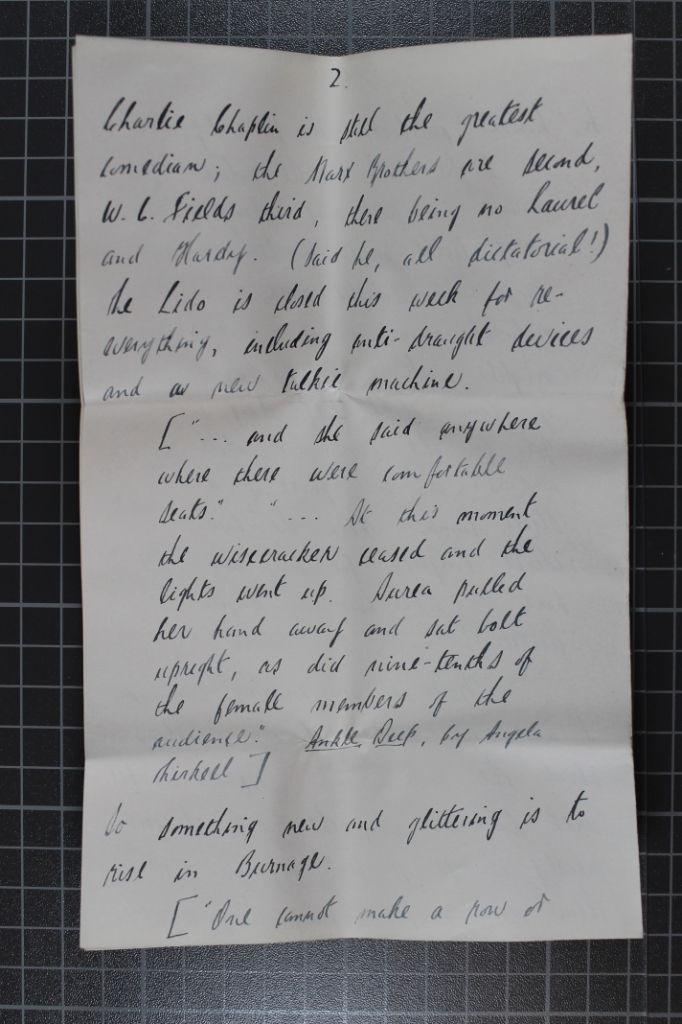 2.
Charlie Chaplin is still the greatest
comedian; the Marx Brothers are second,
W. C. Fields third, there being no Laurel
and Hardy. (Said he, all dictatorial!)
The Lido is closed this week for re-
everything, including anti-draught devices
and a new talkie machine.
["... and she said anywhere
where there were comfortable
seats." "... At this moment
the wisecracker ceased and the
lights went up. Aurea pulled
her hand away and sat bolt
upright, as did nine-tenths of
the female members of the
audience." Ankle Deep, by Angela
Thirkell]
So something new and glittering is to
rise in Burnage.
["One cannot make a row or